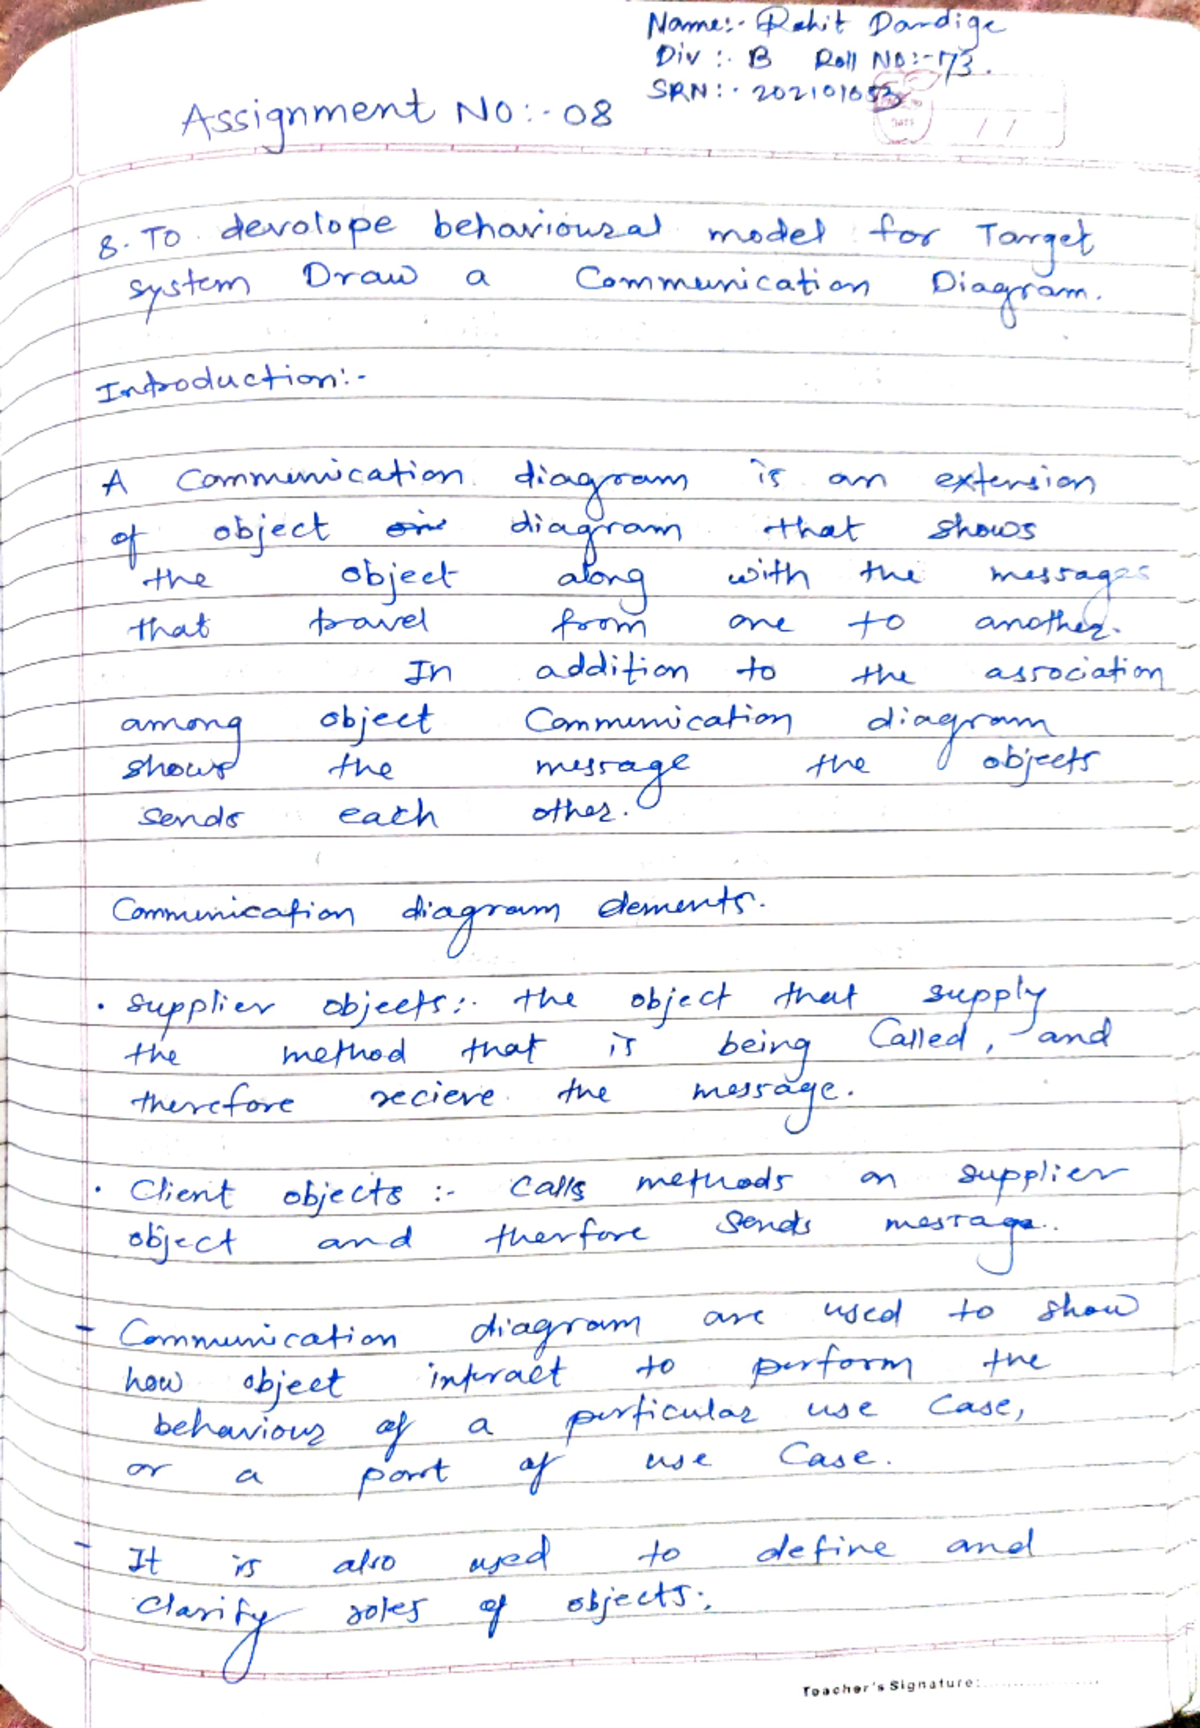 Name:- Rohit Dardige
Div :- B Roll No:- 73.
SRN:- 202101053
Assignment No:- 08
DATE / /
8. To devolope behavioural model for Target
system Draw a Communication Diagram.
Introduction:-
A Communication diagram is an extension
of object diagram that shows
the object along with the messages
that travel from one to another.
In addition to the association
among object Communication diagram
shows the message the objects
sends each other.
Communication diagram elements.
• supplier objects:- the object that supply
the method that is being Called, and
therefore recieve the message.
• Client objects :- calls methods on supplier
object and therfore sends message.
- Communication diagram are used to show
how object interact to perform the
behaviour of a perticular use case,
or a part of use Case.
- It is also used to define and
clarify roles of objects:,
Teacher's Signature: